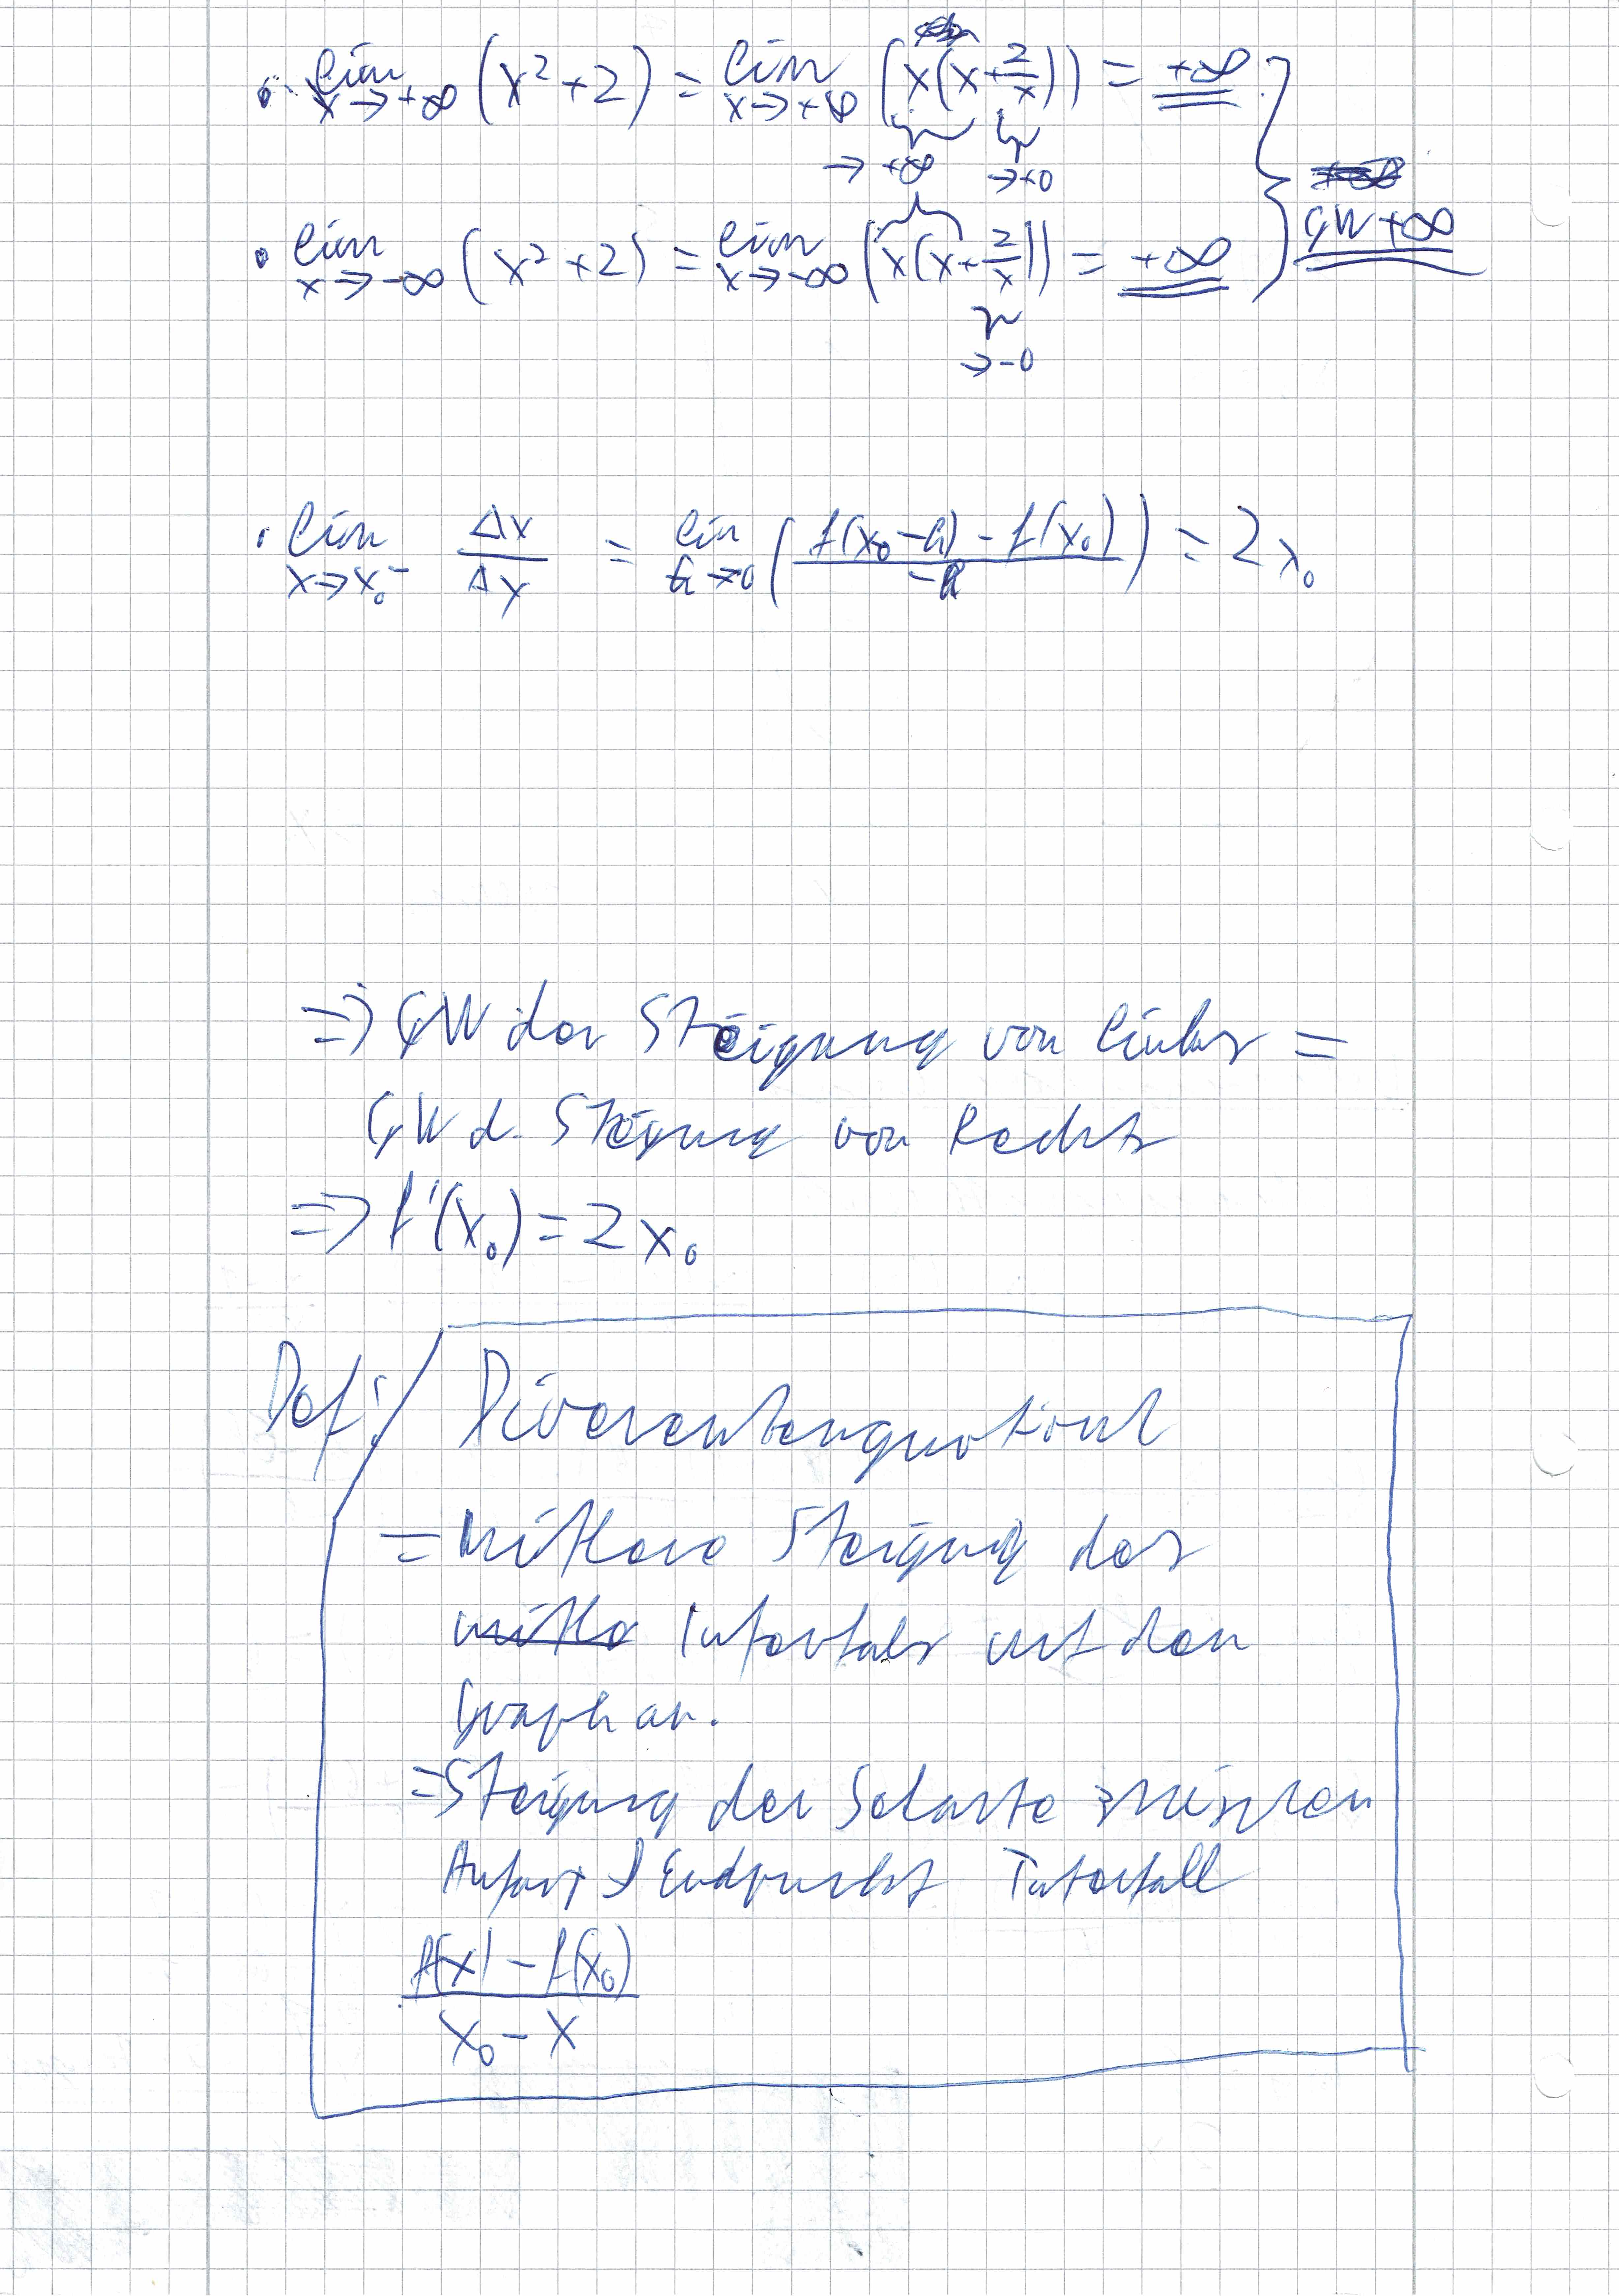 • lim x→+∞ (x² + 2) = lim x→+∞ (x(x + 2/x)) = +∞
→ +∞ → +0
GW +∞
• lim x→-∞ (x² + 2) = lim x→-∞ (x(x + 2/x)) = +∞
→ -0
• lim x→x₀⁻ Δx/Δy = lim h→0 ((f(x₀-h) - f(x₀))/-h) = 2x₀
=> GW der Steigung von links =
GW d. Steigung von Rechts
=> f'(x₀) = 2x₀
Def: Diverentenquotient
= mittlere Steigung des
mittle Intervals mit den
Graphan.
= Steigung der Sekante zwischen
Anfang Endpunkt Intervall
(f(x) - f(x₀))/(x₀ - x)